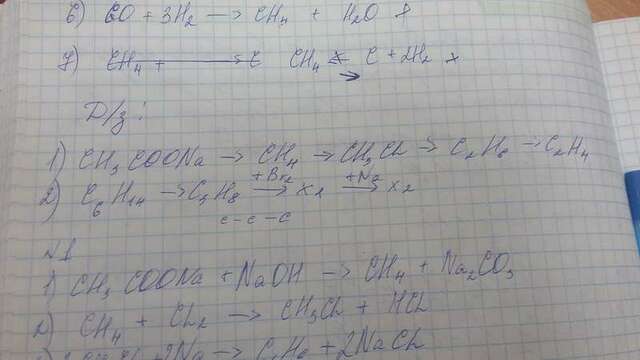 6) CO + 3H₂ → CH₄ + H₂O
7) CH₄ C + 2H₂
Д/з:
1) CH₃COONa → CH₄ → CH₃Cl → C₂H₆ → C₂H₄
2) C₆H₁₄ → C₃H₈ +Br₂ → x₁ +Na → x₂
c - c - c
№1
1) CH₃COONa + NaOH → CH₄ + Na₂CO₃
2) CH₄ + Cl₂ → CH₃Cl + HCl
2Na → C₂H₆ + 2NaCl